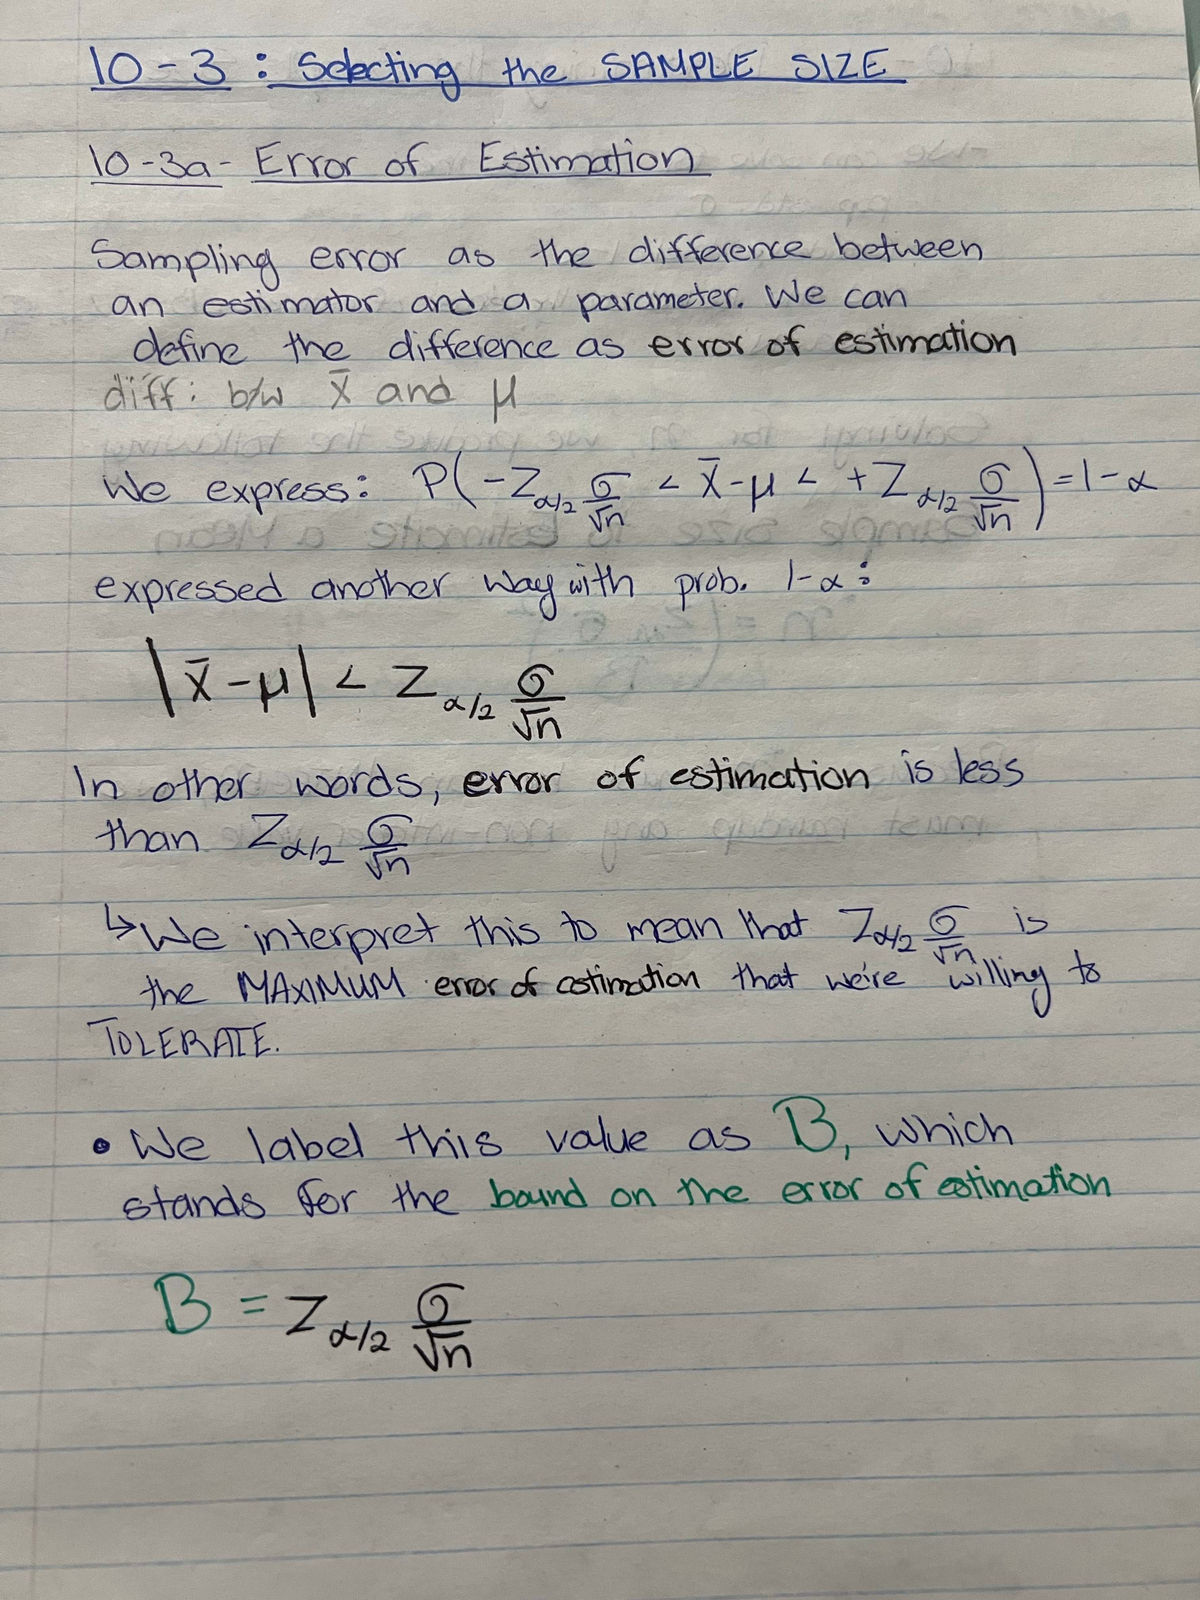 10-3: Selecting the SAMPLE SIZE
10-3a- Error of Estimation
Sampling error as the difference between
an estimator and a parameter. We can
define the difference as error of estimation
diff: b/w x̄ and μ
We express: P(-Z_{α/2} σ/√n < x̄-μ < +Z_{α/2} σ/√n) = 1-α
expressed another way with prob. 1-α:
|x̄-μ| < Z_{α/2} σ/√n
In other words, error of estimation is less
than Z_{α/2} σ/√n
↳ We interpret this to mean that Z_{α/2} σ/√n is
the MAXIMUM error of estimation that we're willing to
TOLERATE.
• We label this value as B, which
stands for the bound on the error of estimation
B = Z_{α/2} σ/√n